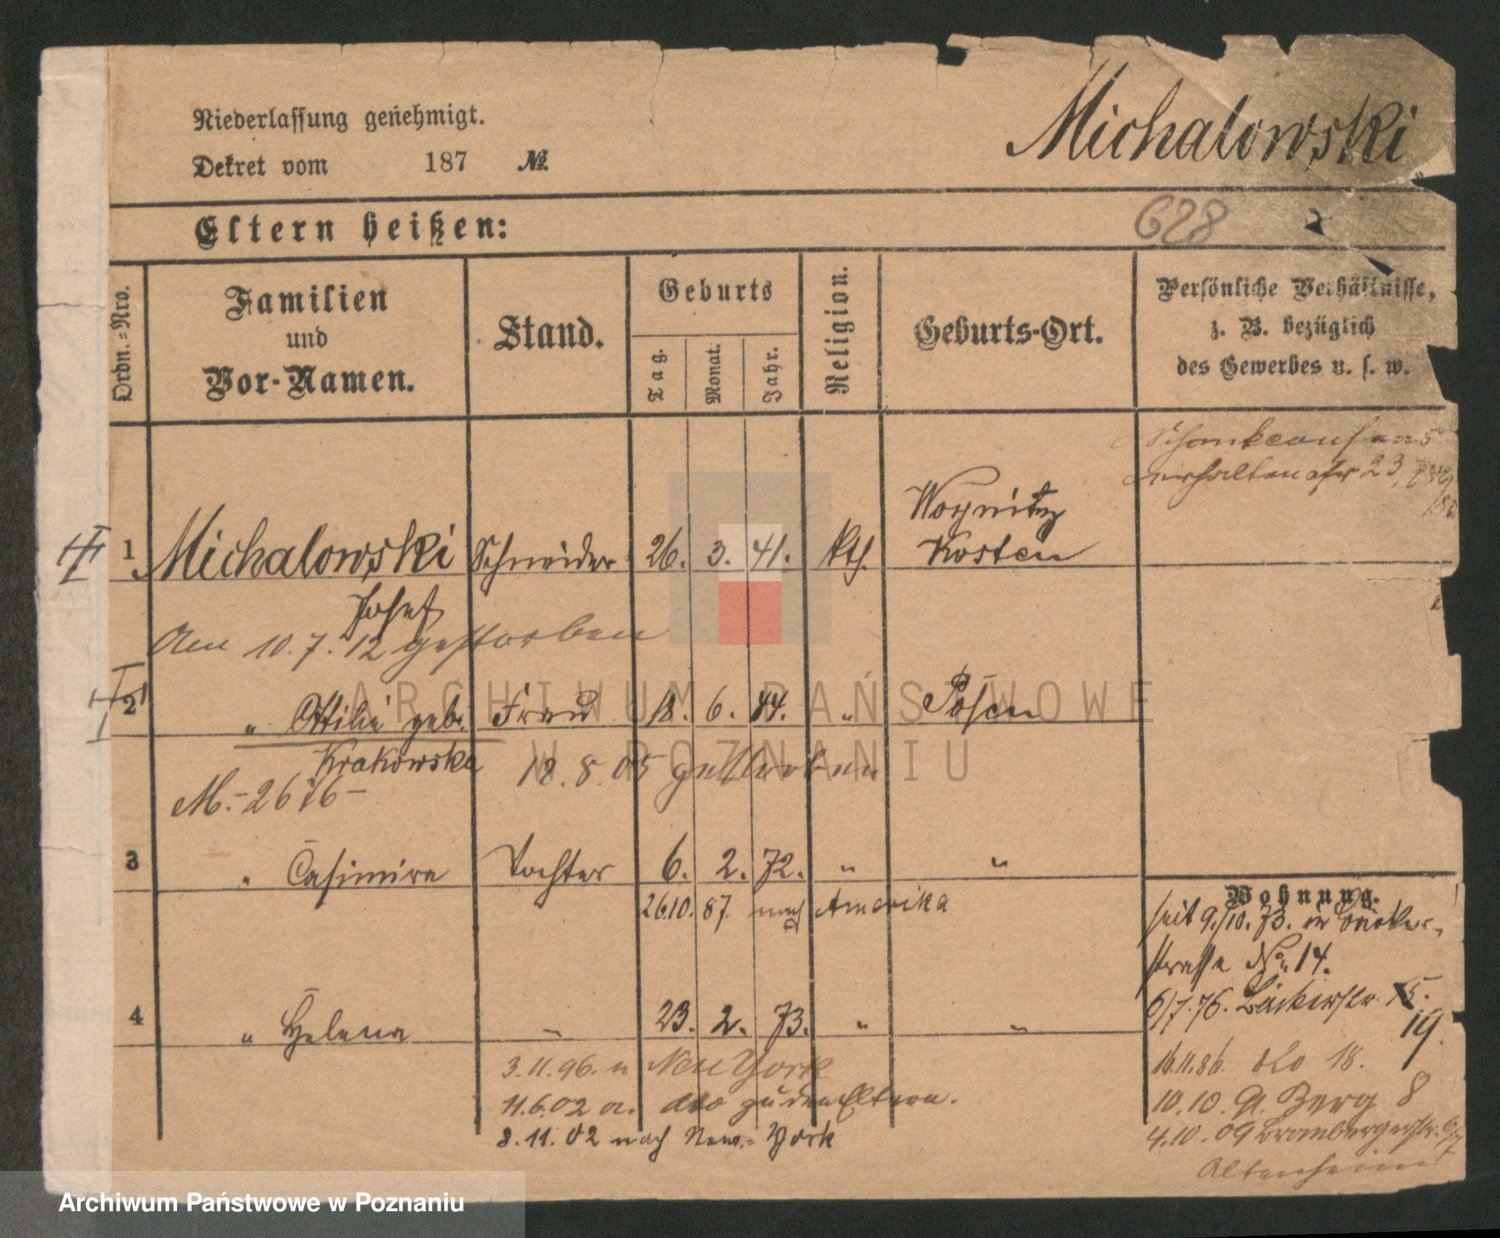 Niederlassung genehmigt.
Dekret vom 187 №
Michalowski
Eltern heißen:
628
Ordn.-Nro.
Familien
und
Vor-Namen.
Stand.
Geburts
Tag.
Monat.
Jahr.
Religion.
Geburts-Ort.
Persönliche Verhältnisse,
z. B. bezüglich
des Gewerbes u. s. w.
1 Michalowski Schneider 26. 3. 41. kth. Woynitz
Kosten
Josef
Am 10.7.12 gestorben
2 " Ottilie geb. Frau 18. 6. 44. " Posen
Krakowska 18.8.05 gestorben
M.-2676-
3 " Casimira Tochter 6. 2. 72. " "
26.10. 87. nach Amerika
Wohnung.
seit 9./10. 73. in Bäcker-
strasse No 14.
6/7.76. Bäckerstr. 15.
19.
4 " Helena " 23. 2. 73. " "
3.11.96. n New York
11.6.02 a. dto zu den Eltern.
8.11.02 nach New-York
16.11.86. dto 18.
10.10. 91. Berg 8
4.10.09 Brombergerstr.
Altenheim
ARCHIWUM PAŃSTWOWE
W POZNANIU
Archiwum Państwowe w Poznaniu